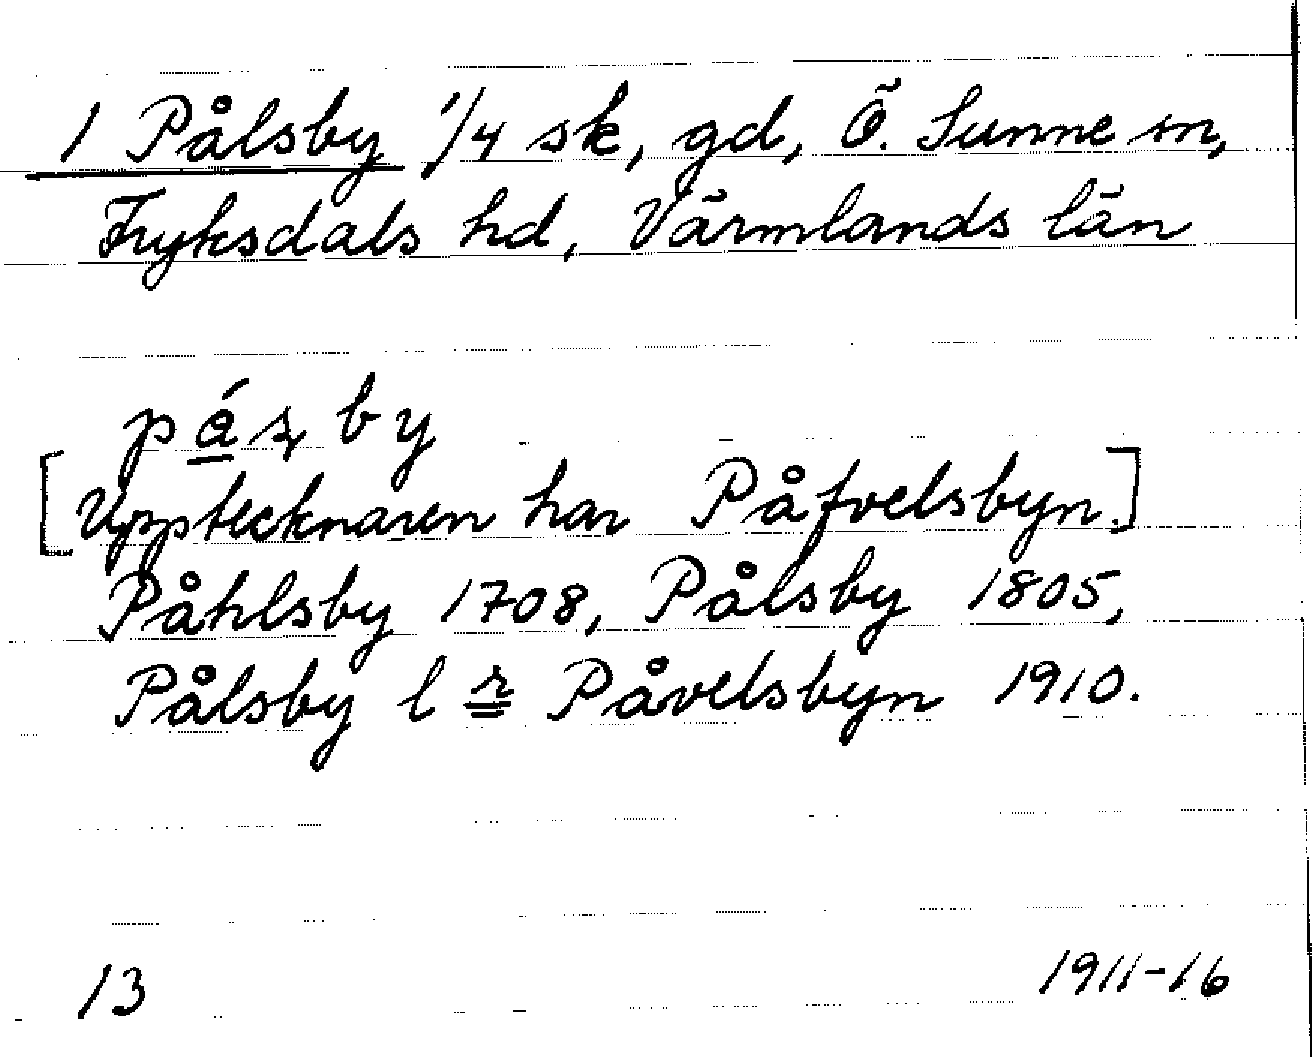 1 Pålsby 1/4 sk, gd, Ö. Sunne sn,
Fryksdals hd, Värmlands län
pá̱ʂby
[Upptecknaren har Påfvelsbyn.]
Påhlsby 1708, Pålsby 1805,
Pålsby l r Påvelsbyn 1910.
13 1911-16